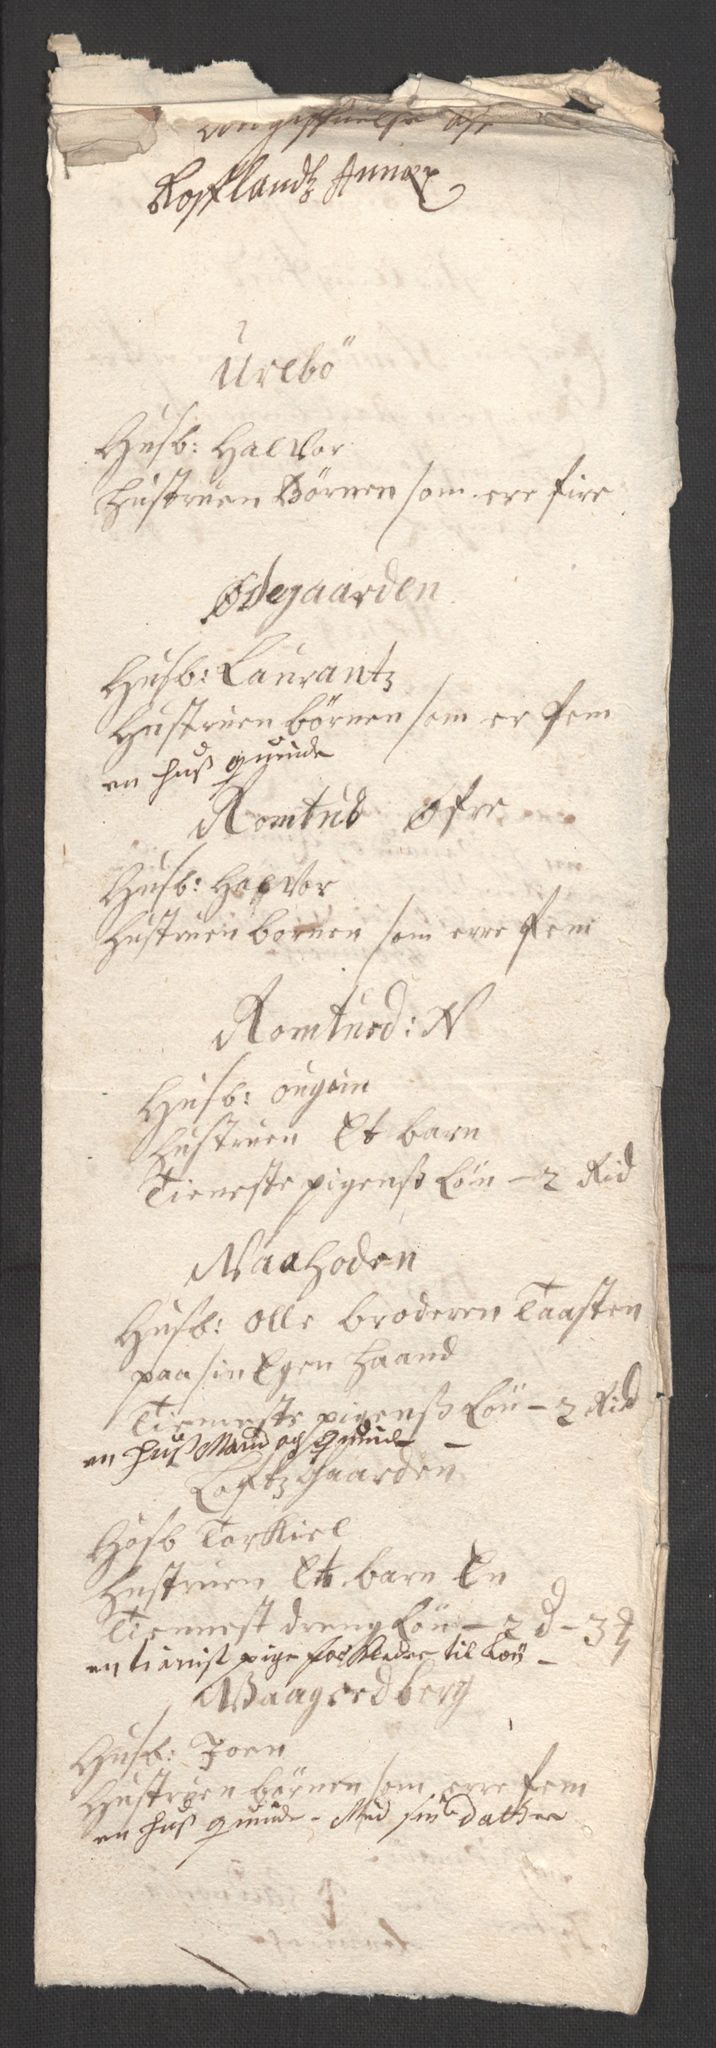 Roflandtz Annex
Urebö
Husb: Halvor
Hustruen Börnen som ere fire
Ødegaarden
Husb: Laurantz
Hustruen börnen som er fem
en huß quinde
Romtud öfre
Husb: Halvor
Hustruen bornen som erre fem
Romtued: N
Husb: ougein
Hustruen Et barn
Tieneste pigenß Lön – 2 Rid
Naahoden
Husb: Olle broderen Taasten
paa sin Egen haand
Tieneste pigenß Lön – 2 Rid
en huß Mand och quinde –
Loftzgaarden
Hosb Torkiel
Hustruen Et barn En
Tiennest dreng Lön – 2 d – 3
en tienist pige for Kleder til Lön –
Waagerdberg
Husb: Joen
Hustruen börnen som erre fem
en huß quinde – Med sin datter